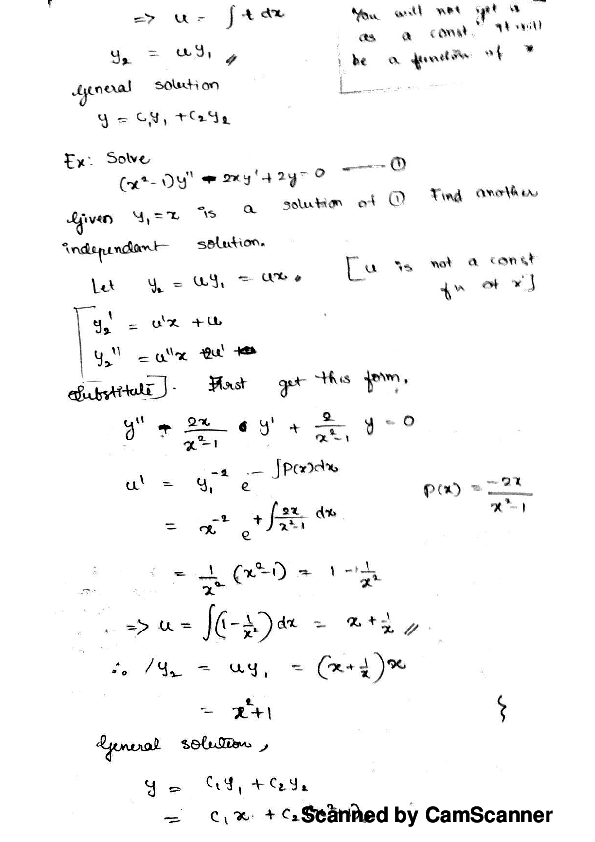 => u = ∫ t dx
You will not get u
as a const. It will
be a function of x
y₂ = uy₁ //
General solution
y = C₁y₁ + C₂y₂
Ex: Solve
(x²-1)y'' - 2xy' + 2y = 0 —— ①
Given y₁ = x is a solution of ① Find another
independant solution.
Let y₂ = uy₁ = ux. [u is not a const
fn of x]
y₂' = u'x + u
y₂'' = u''x + 2u'
Substitute]. First get this form,
y'' - 2x/(x²-1) y' + 2/(x²-1) y = 0
u' = y₁⁻² e^(-∫P(x)dx)
P(x) = -2x/(x²-1)
= x⁻² e^(+∫2x/(x²-1) dx)
= 1/x² (x²-1) = 1 - 1/x²
=> u = ∫(1 - 1/x²) dx = x + 1/x //
∴ y₂ = uy₁ = (x + 1/x)x
= x² + 1 }
General solution,
y = C₁y₁ + C₂y₂
= C₁x + C₂
Scanned by CamScanner